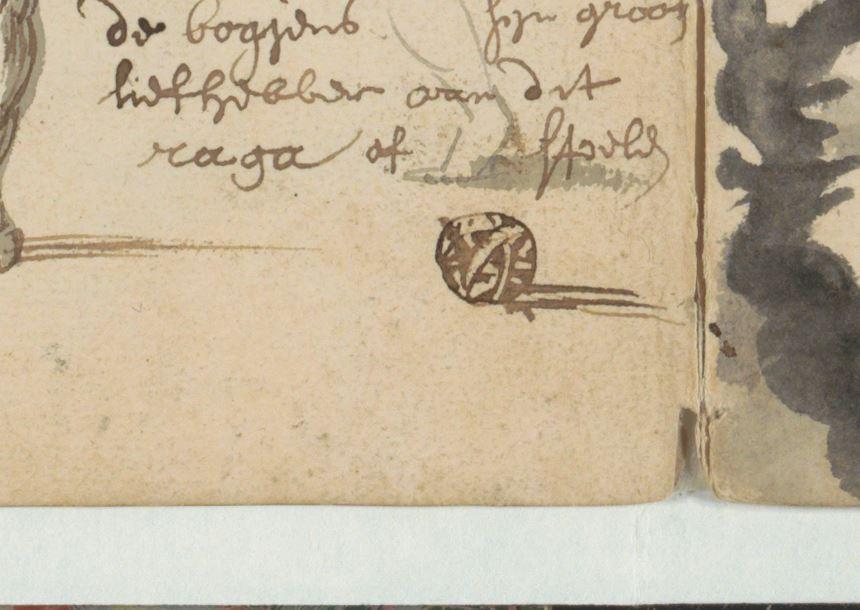 de bogjens zijn groot
liefhebber van dit
raga of